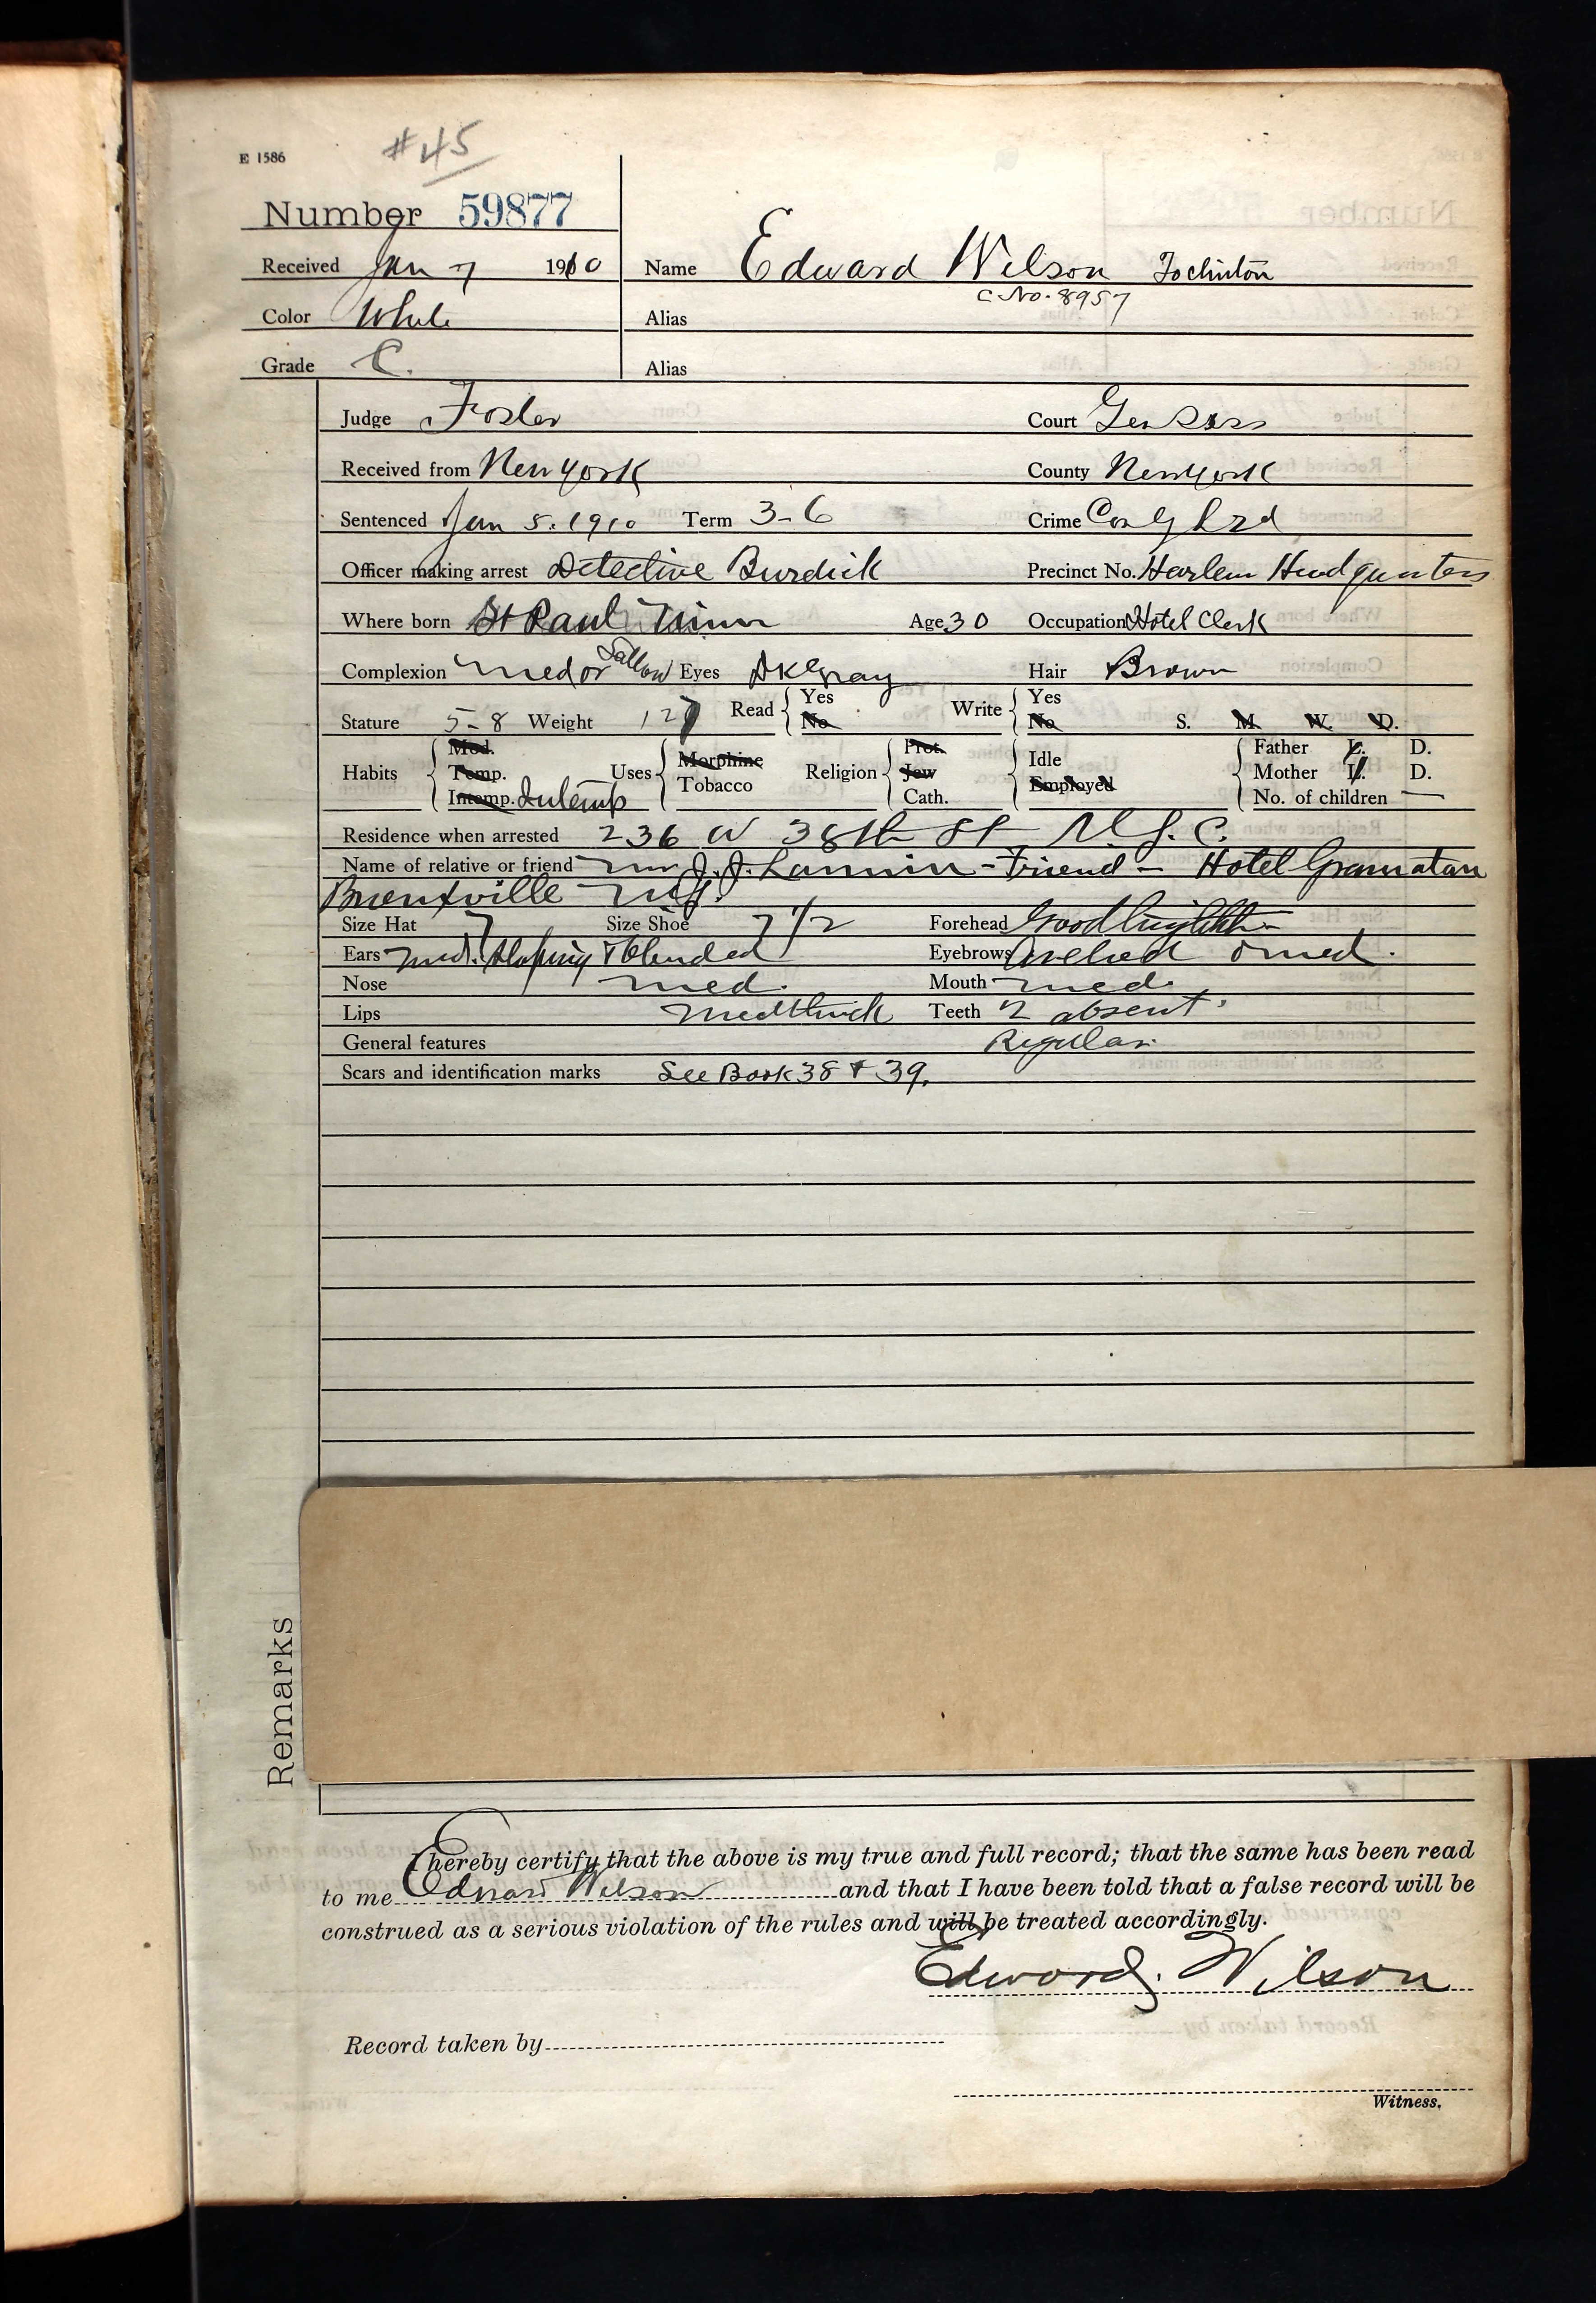 E 1586
#45
Number 59877
Received Jan 7 1910
Name Edward Wilson To Clinton
C. No. 8957
Color White
Alias
Grade C.
Alias
Judge Foster Court Gen Sess
Received from New York County New York
Sentenced Jan 5. 1910 Term 3-6 Crime Burg 3rd
Officer making arrest Detective Burdick Precinct No. Harlem Headquarters
Where born St Paul Minn Age 30 Occupation Hotel Clerk
Complexion med or Sallow Eyes Dk Gray Hair Brown
Stature 5-8 Weight 127 Read { Yes No Write { Yes No S. M. W. D.
Habits { Mod. Temp. Intemp. Intemp Uses { Morphine Tobacco Religion { Prot. Jew Cath. { Idle Employed { Father L. D. Mother L. D. No. of children —
Residence when arrested 236 W 38th St N.Y.C.
Name of relative or friend Mr J. J. Lannin - Friend - Hotel Gramatan
Bronxville N.Y.
Size Hat 7 Size Shoe 7 1/2 Forehead Good height
Ears med. sloping & blended Eyebrows Arched & med.
Nose med. Mouth med.
Lips Med thick Teeth 2 absent
General features Regular.
Scars and identification marks See Book 38 & 39.
Remarks
I hereby certify that the above is my true and full record; that the same has been read
to me Edward Wilson and that I have been told that a false record will be
construed as a serious violation of the rules and will be treated accordingly.
Edward Wilson
Record taken by
Witness.